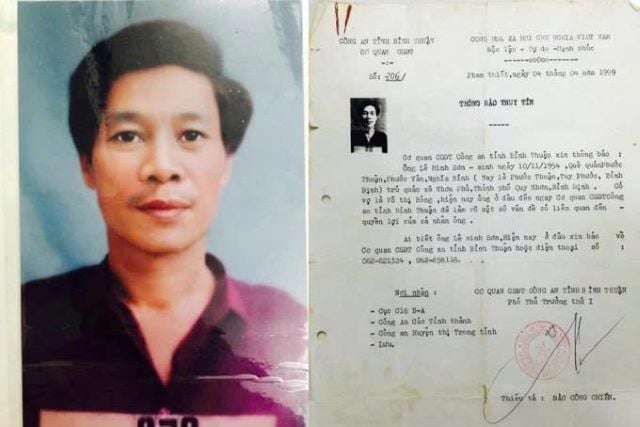 CÔNG AN TỈNH BÌNH THUẬN
CƠ QUAN CSĐT
-:-
Số: 206/
CỘNG HOÀ XÃ HỘI CHỦ NGHĨA VIỆT NAM
Độc lập - Tự do - Hạnh phúc
------oo0oo------
Phan thiết, ngày 04 tháng 04 năm 1999
THÔNG BÁO TRUY TÌM
-----
Cơ quan CSĐT Công an tỉnh Bình Thuận xin thông báo :
Ông Lê Minh Sơn - sinh ngày 10/11/1954 ,Quê quán Phước
Thuận,Phước Vân,Nghĩa Bình ( Nay là Phước Thuận,Tuy Phước, Bình
Định) trú quán xã Nhơn Phú,Thành phố Quy Nhơn,Bình Định. Có
vợ là Võ thị Hồng ,hiện nay ông ở đâu đến ngay Cơ quan CSĐT Công
an tỉnh Bình Thuận để làm rõ một số vấn đề có liên quan đến -
quyền lợi của cá nhân ông .
Ai biết ông Lê minh Sơn,Hiện nay ở đâu xin báo về
Cơ quan CSĐT Công an tỉnh Bình Thuận hoặc điện thoại số :
062-821324 , 062-858116.
Nơi nhận :
- Cục C16 B-A
- Công An Các Tỉnh thành
- Công an Huyện thị Trong tỉnh
- Lưu.
CƠ QUAN CSĐT CÔNG AN TỈNH BÌNH THUẬN
Phó Thủ Trưởng thứ I
Thiếu tá : ĐÀO CÔNG CHIẾN.